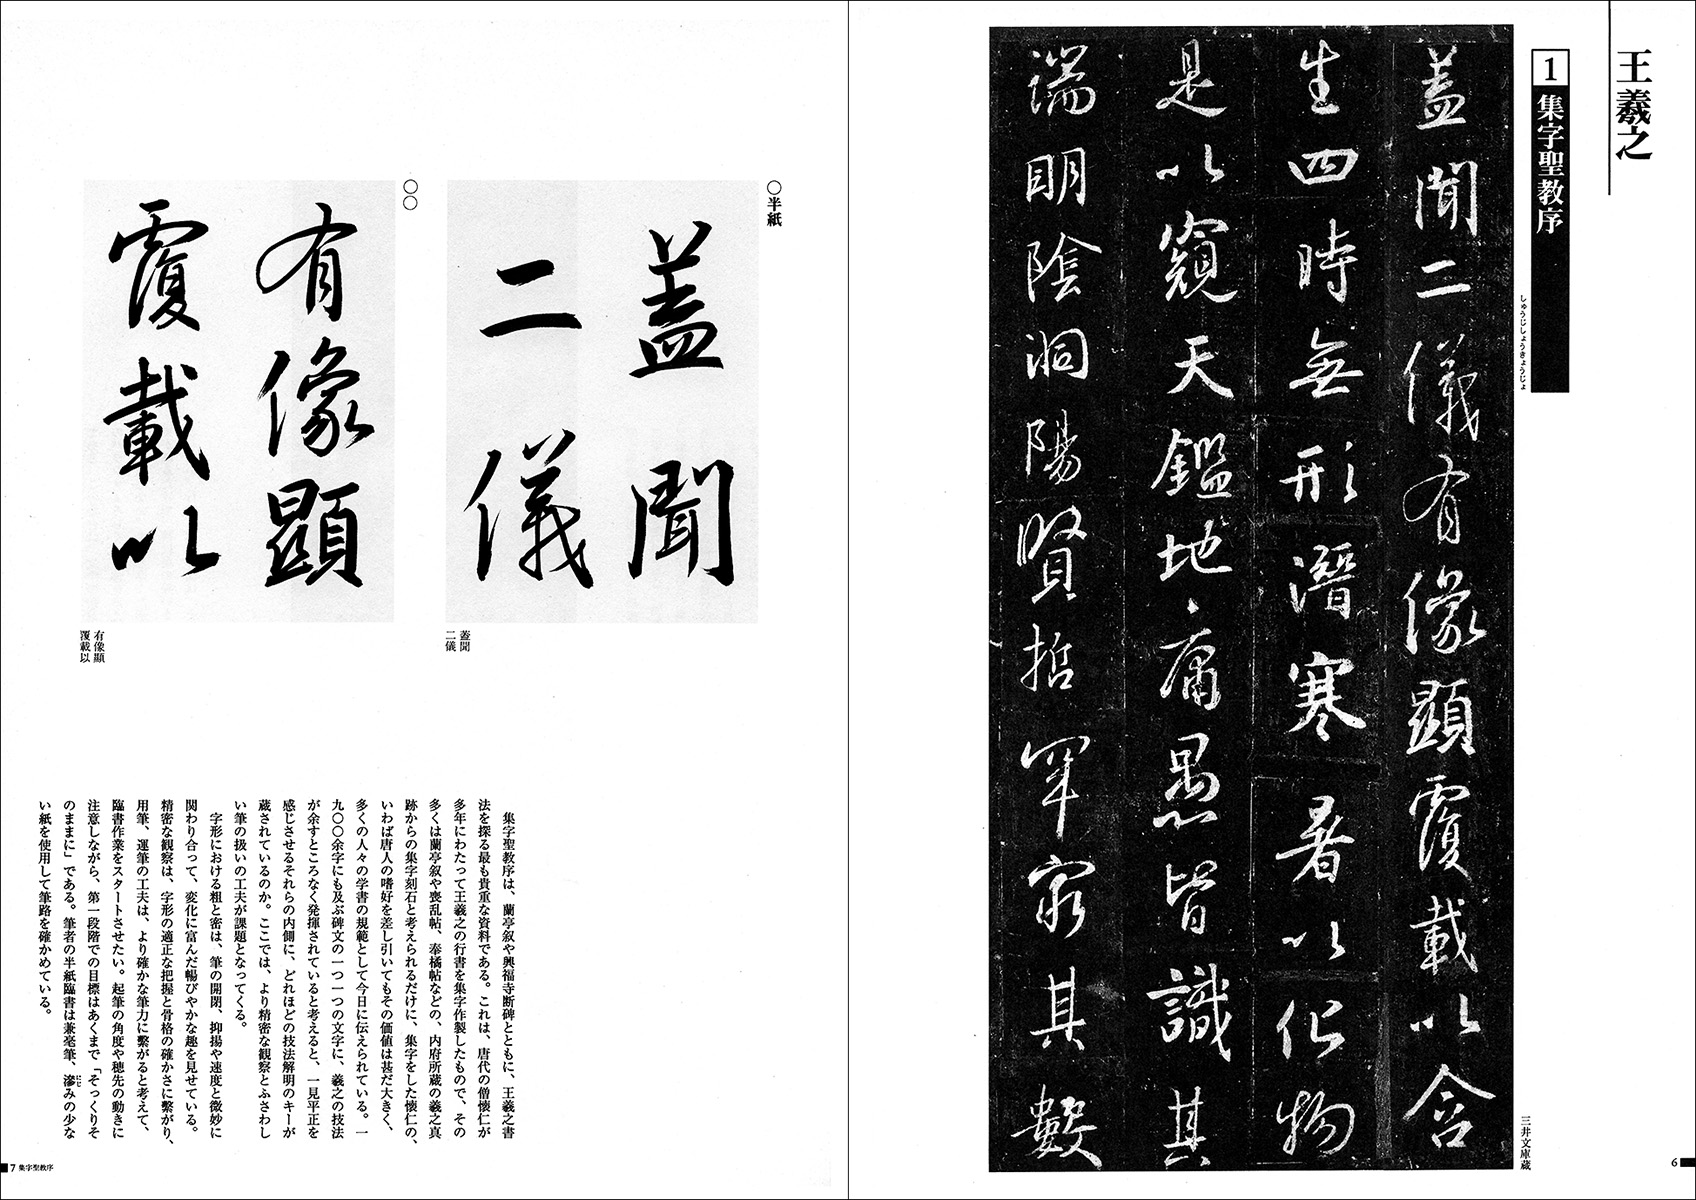 王羲之
1 集字聖教序
しゅうじしょうきょうじょ
蓋聞二儀有像顯覆載以含
生四時無形潛寒暑以化物
是以窺天鑑地庸愚皆識其
端明陰洞陽賢哲罕窮其數
三井文庫蔵
6
〇半紙
蓋聞
二儀
蓋聞
二儀
〇〇
有像顯
覆載以
有像顯
覆載以
集字聖教序は、蘭亭叙や興福寺断碑とともに、王羲之書
法を探る最も貴重な資料である。これは、唐代の僧懐仁が
多年にわたって王羲之の行書を集字作製したもので、その
多くは蘭亭叙や喪乱帖、奉橘帖などの、内府所蔵の羲之真
跡からの集字刻石と考えられるだけに、集字をした懐仁の、
いわば唐人の嗜好を差し引いてもその価値は甚だ大きく、
多くの人々の学書の規範として今日に伝えられている。一
九〇〇余字にも及ぶ碑文の一つ一つの文字に、羲之の技法
が余すところなく発揮されていると考えると、一見平正を
感じさせるそれらの内側に、どれほどの技法解明のキーが
蔵されているのか。ここでは、より精密な観察とふさわし
い筆の扱いの工夫が課題となってくる。
字形における粗と密は、筆の開閉、抑揚や速度と微妙に
関わり合って、変化に富んだ暢びやかな趣を見せている。
精密な観察は、字形の適正な把握と骨格の確かさに繫がり、
用筆、運筆の工夫は、より確かな筆力に繫がると考えて、
臨書作業をスタートさせたい。起筆の角度や穂先の動きに
注意しながら、第一段階での目標はあくまで「そっくりそ
のままに」である。筆者の半紙臨書は兼毫筆、滲みの少な
い紙を使用して筆路を確かめている。
7 集字聖教序